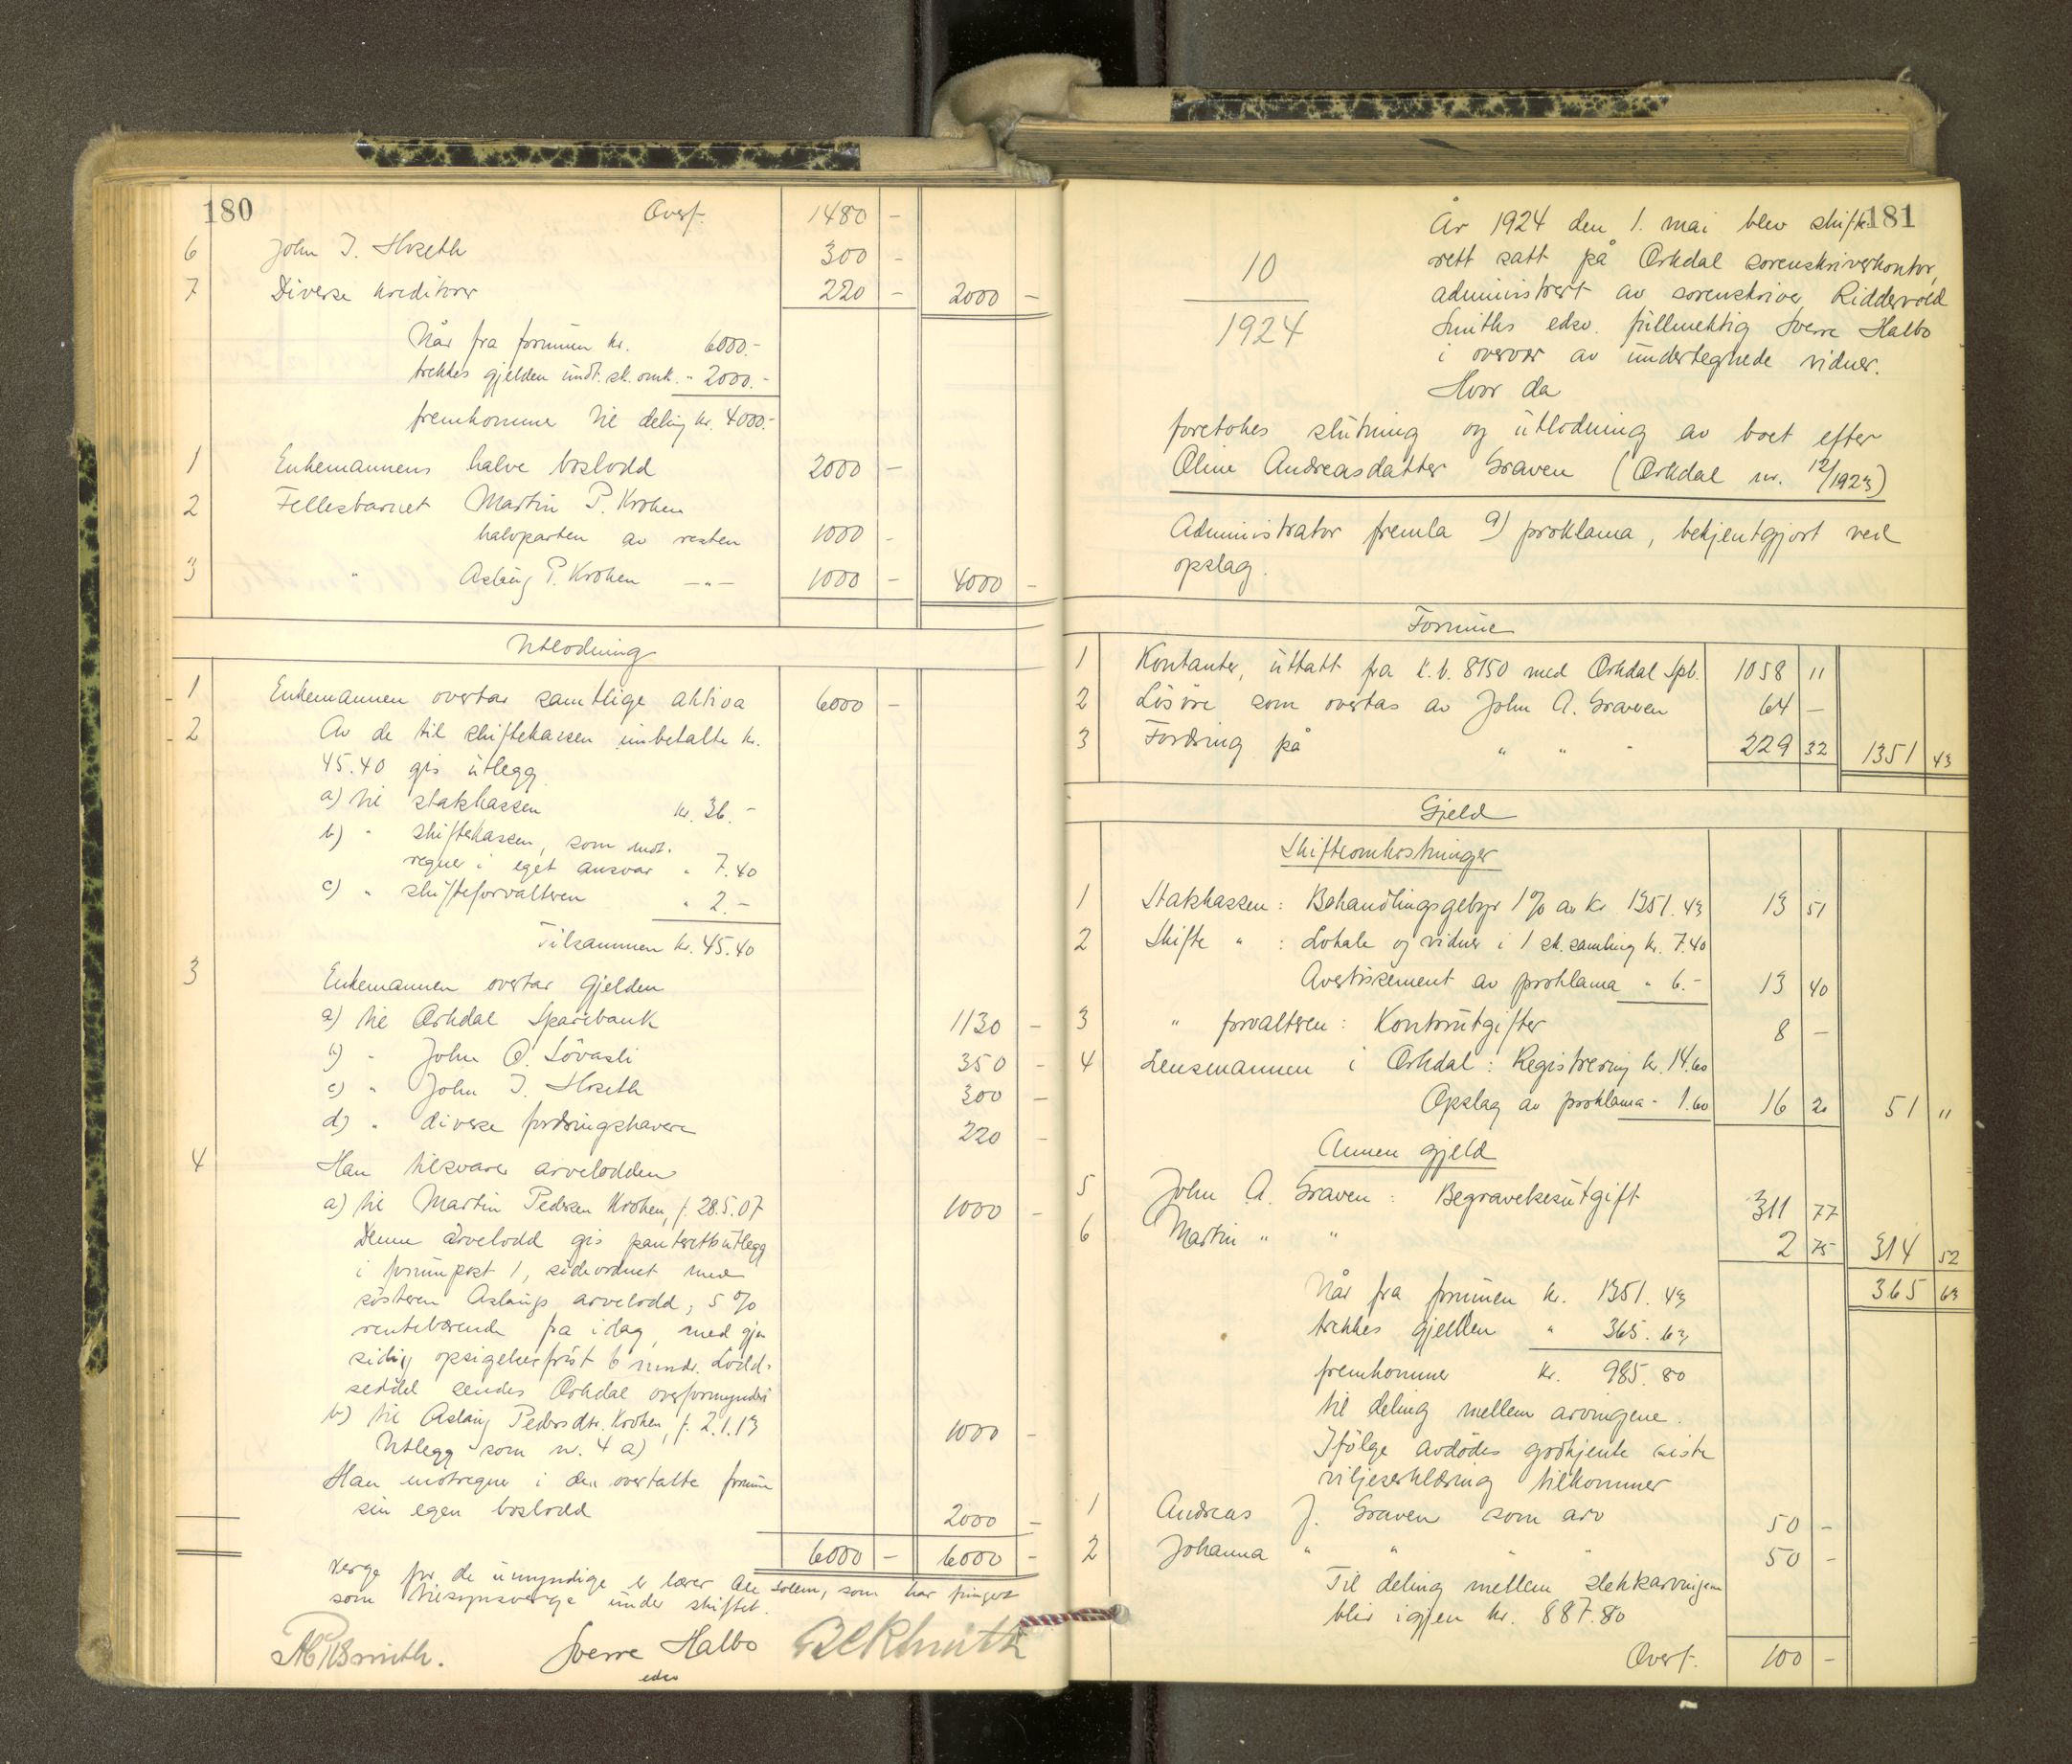 180 Overf. 1480 –
6 John I. Hoseth 300 –
7 Diverse kreditorer 220 – 2000 –
Når fra formuen kr. 6000.–
trekkes gjelden undt. sk. omk. " 2000.–
fremkommer til deling kr. 4000.–
1 Enkemannens halve boslodd 2000 –
2 Fellesbarnet Martin P. Kroken
halvparten av resten 1000 –
3 " Aslaug P. Kroken –"– 1000 – 4000 –
Utlodning
1 Enkemannen overtar samtlige aktiva 6000 –
2 Av de til skiftekassen innbetalte kr.
45.40 gis utlegg
a) til statskassen kr. 36.–
b) " skiftekassen, som mot-
regner i eget ansvar " 7.40
c) " skifteforvalteren " 2.–
Tilsammen kr. 45.40
3 Enkemannen overtar gjelden
a) til Orkdal Sparebank 1130 –
b) " John O. Løvasli 350 –
c) " John I. Hoseth 300 –
d) " diverse fordringshavere 220 –
4 Han tilsvarer arvelodden
a) til Martin Pedersen Kroken, f. 28.5.07 1000 –
Denne arvelodd gis panterettsutlegg
i formuepost 1, sideordnet med
søsteren Aslaugs arvelodd, 5 %
rentebærende fra idag, med gjen
sidig opsigelsesfrist 6 mndr. Lodd-
seddel sendes Orkdal overformynderi
b) til Aslaug Pedersdtr. Kroken, f. 2.1.13 1000 –
Utlegg som nr. 4 a)
Han motregner i den overtatte formue
sin egen boslodd 2000 –
6000 – 6000 –
Verge for de umyndige er lærer Ole Solem, som har fungert
som tilsynsverge under skiftet.
Sverre Halbo
edsv
181
År 1924 den 1. mai blev skifte-
rett satt på Orkdal sorenskriverkontor,
administrert av sorenskriver Riddervold
Smiths edsv. fullmektig Sverre Halbo
i overvær av undertegnede vidner.
10
1924
Hvor da
foretokes slutning og utlodning av boet efter
Oline Andreasdatter Graven (Orkdal nr. 12/1923)
Administrator fremla a) proklama, bekjentgjort ved
opslag.
Formue
1 Kontanter, uttatt fra k.b. 8150 med Orkdal Spb. 1058 11
2 Løsøre som overtas av John A. Graven 64 –
3 Fordring på " " " 229 32 1351 43
Gjeld
Skifteomkostninger
1 Statskassen: Behandlingsgebyr 1 % av kr 1351.43 13 51
2 Skifte " : Lokale og vidner i 1 sk. samling kr. 7.40
Avertissement av proklama " 6.– 13 40
3 " forvalteren: Kontorutgifter 8 –
4 Lensmannen i Orkdal: Registrering kr. 14.60
Opslag av proklama " 1.60 16 20 51 11
Annen gjeld
5 John A. Graven: Begravelsesutgift 311 77
6 Martin " " 2 75 314 52
365 63
Når fra formuen kr. 1351.43
trekkes gjelden " 365.63
fremkommer kr. 985.80
til deling mellem arvingene.
Ifølge avdødes godkjente siste
viljeserklæring tilkommer
1 Andreas J. Graven som arv 50 –
2 Johanna " " " " 50 –
Til deling mellem slektsarvingene
blir igjen kr. 887.80
Overf. 100 –